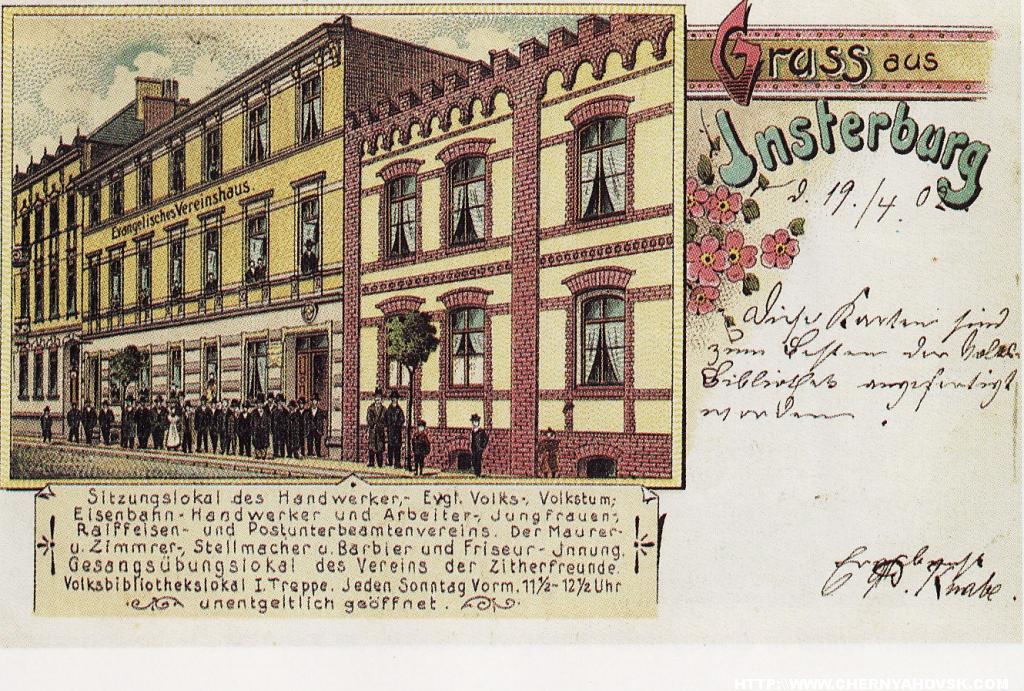 Gruss aus
Insterburg
d. 19./4. 02
Evangelisches Vereinshaus
Diese Karten sind
zum Besten der Volks-
bibliothek angefertigt
worden.
Knabe.
Sitzungslokal des Handwerker,- Evgl. Volks-, Volkstum,-
Eisenbahn-Handwerker und Arbeiter-, Jungfrauen-,
Raiffeisen- und Postunterbeamtenvereins. Der Maurer-
u. Zimmrer-, Stellmacher u. Barbier und Friseur-Jnnung.
Gesangsübungslokal des Vereins der Zitherfreunde.
Volksbibliothekslokal I. Treppe. Jeden Sonntag Vorm. 11½-12½ Uhr
unentgeltlich geöffnet.
HTTP://WWW.CHERNYAHOVSK.COM